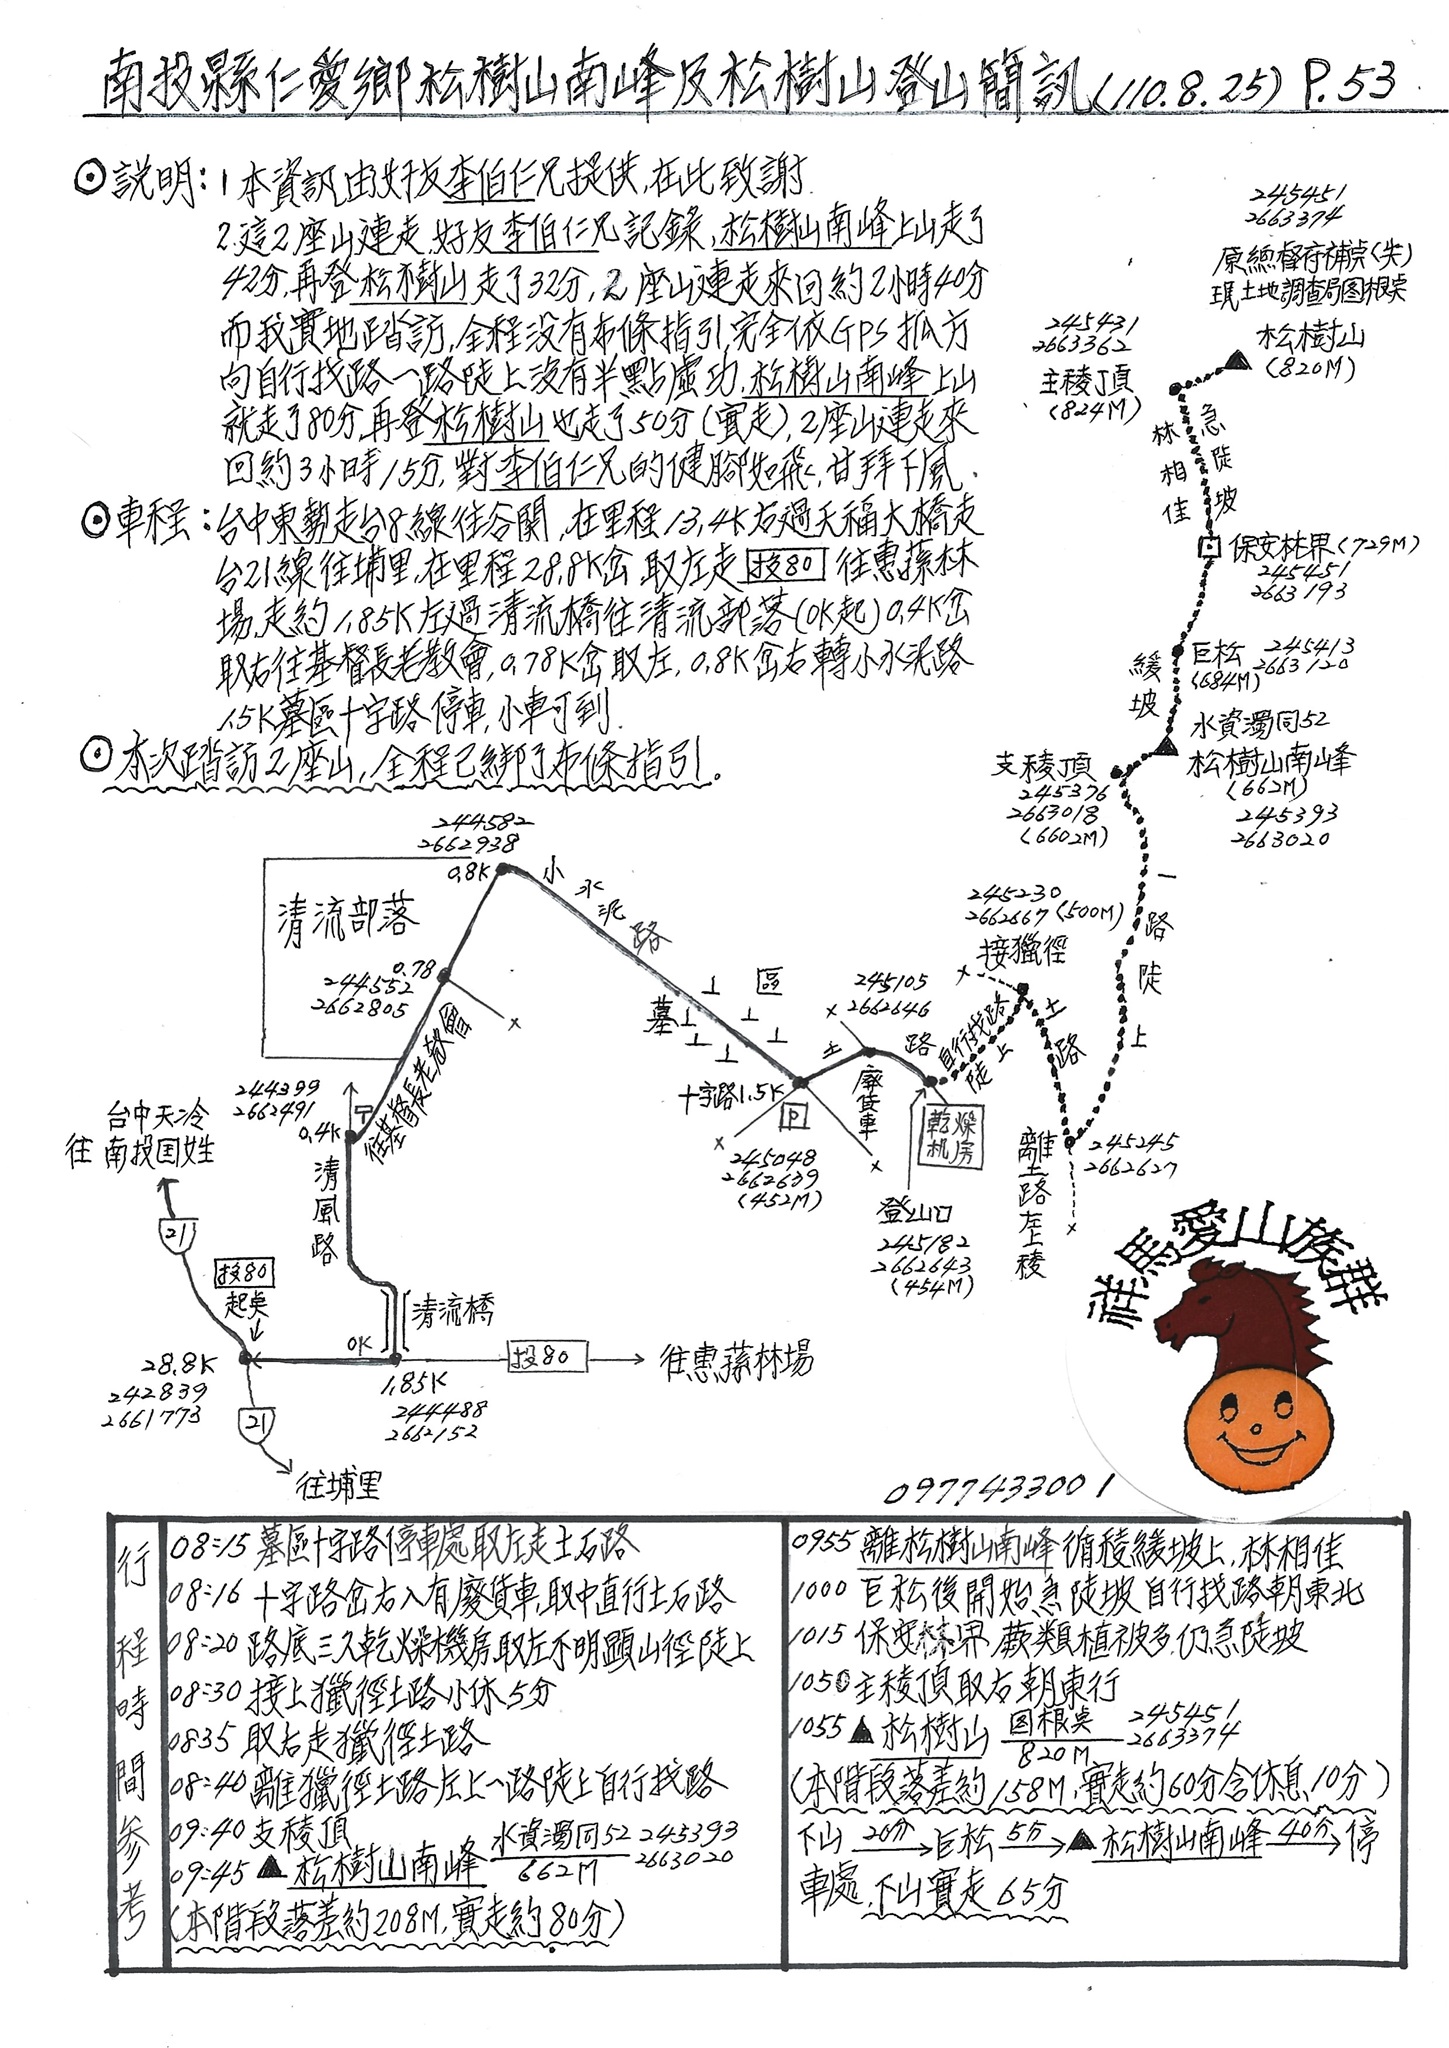 南投縣仁愛鄉松樹山南峰及松樹山登山簡訊(110.8.25) P.53
⊙說明:1本資訊由好友李伯仁兄提供,在此致謝.
2.這2座山連走,好友李伯仁兄記錄,松樹山南峰上山走了
42分,再登松樹山走了32分,2座山連走來回約2小時40分
而我實地踏訪,全程沒有布條指引,完全依GPS抓方
向自行找路一路陡上沒有半點虛功,松樹山南峰上山
就走了80分,再登松樹山也走了50分(實走),2座山連走來
回約3小時15分,對李伯仁兄的健腳如飛,甘拜下風.
⊙車程:台中東勢走台8線往谷關,在里程13.4K右過天福大橋走
台21線往埔里,在里程28.8K岔取左走 投80 往惠蓀林
場,走約1.85K左過清流橋往清流部落(0K起)0.4K岔
取右往基督長老教會,0.78K岔取左,0.8K岔右轉小水泥路
1.5K墓區十字路停車,小車可到.
⊙本次踏訪2座山,全程已綁了布條指引.
245451
2663374
原總督府補點(失)
現土地調查局图根桌
松樹山
(820M)
245431
2663362
主稜頂
(824M)
林相佳
急陡坡
保安林界(729M)
245451
2663193
巨松
(684M)
245413
2663120
緩坡
水資濁同52
松樹山南峰
(662M)
245393
2663020
支稜頂
245376
2663018
(6602M)
一路陡上
245230
2662667(500M)
接獵徑
土路
自行找路
陡上
離土路左上稜
245245
2662627
244582
2662938
0.8K
小水泥路
清流部落
0.78
244552
2662805
往基督長老教會
墓區
245105
2662646
土路
廢貨車
乾燥机房
十字路1.5K
P
245048
2662639
(452M)
登山口
245182
2662643
(454M)
244399
2662491
0.4K
台中天冷
往 南投国姓
21
清風路
投80
起桌
清流橋
0K
28.8K
242839
2661773
21
往埔里
1.85K
244488
2662152
投80
往惠蓀林場
祥馬愛山族群
0977433001
行程時間參考
08:15 墓區十字路停車處取左走土石路
08:16 十字路岔右入有廢貨車,取中直行土石路
08:20 路底三久乾燥機房取左不明顯山徑陡上
08:30 接上獵徑土路小休5分
0835 取右走獵徑土路
08:40 離獵徑土路左上一路陡上自行找路
09:40 支稜頂
09:45 ▲松樹山南峰 水資濁同52 662M 245393 2663020
(本階段落差約208M,實走約80分)
0955 離松樹山南峰循稜緩坡上,林相佳
1000 巨松後開始急陡坡自行找路朝東北
1015 保安林界 蕨類植被多,仍急陡坡
1050 主稜頂取右朝東行
1055 ▲松樹山 图根桌 820M 245451 2663374
(本階段落差約158M,實走約60分含休息10分)
下山 20分→巨松 5分→▲松樹山南峰 40分→停
車處,下山實走65分